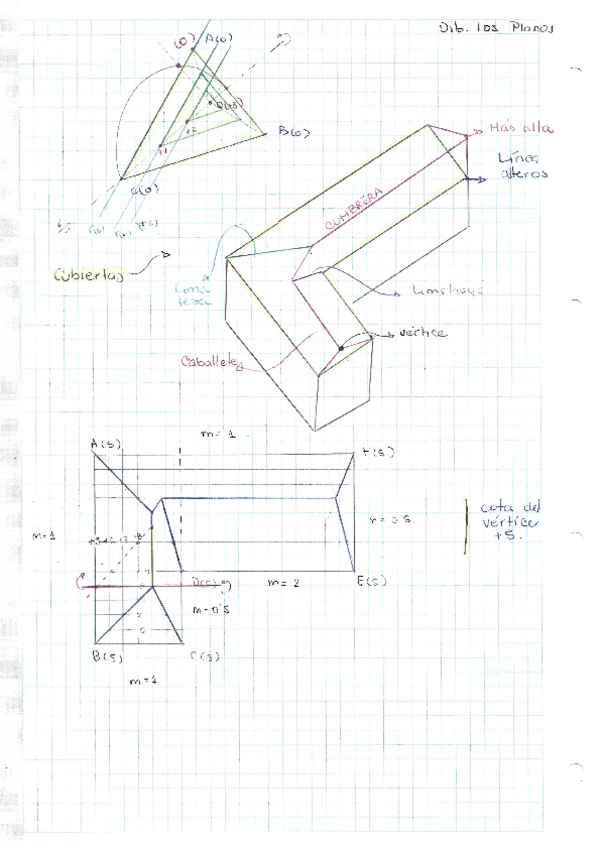 Dib. los Planos
(0)
A(0)
B(0)
+2
+1
C(0)
Más alta
Línea
aleros
CUMBRERA
Cubiertas
Lima
tesa
Limahoya
vértice
Caballete
m=1
A(5)
F(5)
m=1
m=0'5
cota del
vértice
+5.
D(5)
m=2
E(5)
m=0'5
B(5)
C(5)
m=1